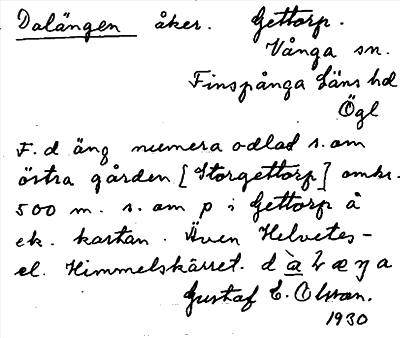 Dalängen åker. Gettorp.
Vånga sn.
Finspånga Läns hd
Ögl
F. d äng numera odlad s. om
östra gården [Storgettorp] omkr.
500 m. s. om p i Gettorp å
ek. kartan. Även Helvetes-
el. Himmelskärret.
Gustaf E. Olsson.
1930